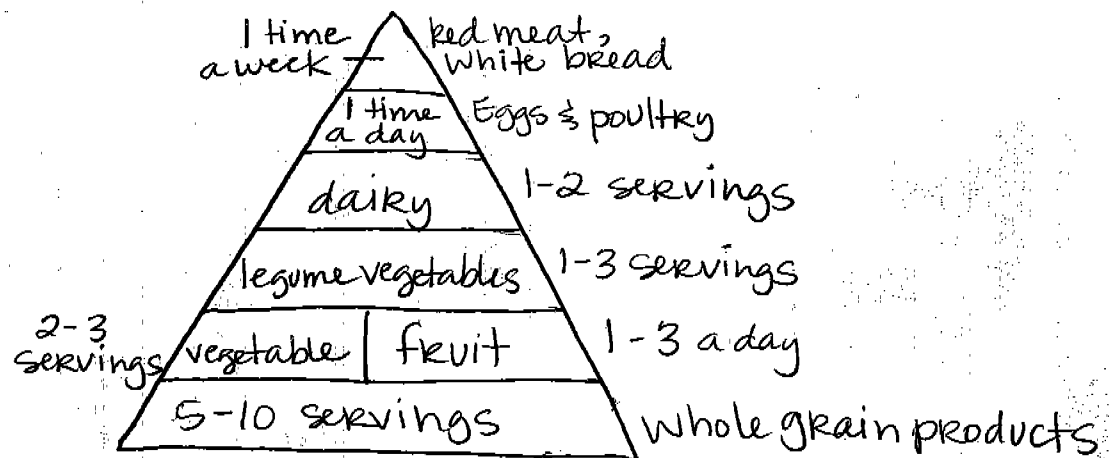 1 time
a week
Red meat,
white bread
1 time
a day
Eggs & poultry
dairy
1-2 servings
legume vegetables
1-3 servings
2-3
servings
vegetable
fruit
1-3 a day
5-10 servings
whole grain products